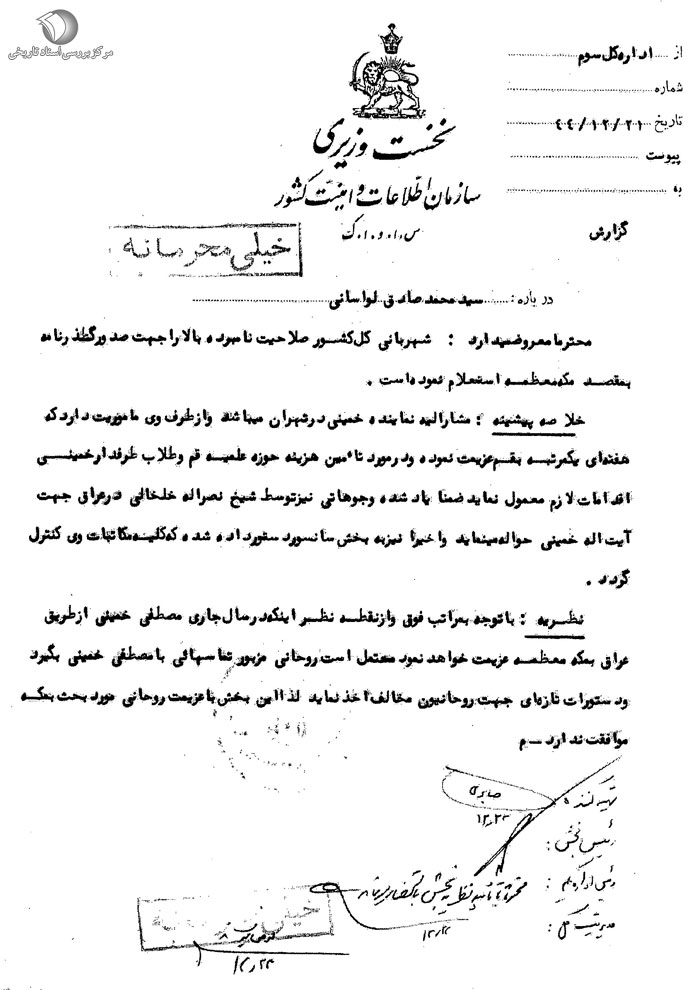 مرکز بررسی اسناد تاریخی
از اداره کل سوم
شماره
تاریخ ۴۴/۱۲/۲۱
پیوست
به
نخست وزیری
سازمان اطلاعات و امنیت کشور
س.ا.و.ا.ک
گزارش
خیلی محرمانه
درباره: سید محمد صادق لواسانی
محترما معروضمیدارد : شهربانی کل کشور صلاحیت نامبرده بالا را جهت صدور گذرنامه
بمقصد مکه معظمه استعلام نموده است .
خلاصه پیشینه : مشارالیه نماینده خمینی در تهران میباشد و از طرف وی ماموریت دارد که
هفته‌ای یکمرتبه بقم عزیمت نموده و در مورد تامین هزینه حوزه علمیه قم و طلاب طرفدار خمینی
اقدامات لازم معمول نماید ضمنا یاد شده وجوهاتی نیز توسط شیخ نصراله خلخالی در عراق جهت
آیت اله خمینی حواله مینماید و اخیرا نیز به بخش سانسور دستور داده شده که کلیه مکاتبات وی کنترل
گردد .
نظریه : با توجه بمراتب فوق و از نقطه نظر اینکه در سال جاری مصطفی خمینی از طریق
عراق بمکه معظمه عزیمت خواهد نمود محتمل است روحانی مزبور تماسهائی با مصطفی خمینی بگیرد
و دستورات تازه‌ای جهت روحانیون مخالف اخذ نماید لذا این بخش با عزیمت روحانی مورد بحث بمکه
موافقت ندارد م
تهیه کننده : صابری
۱۲/۲۳
رئیس بخش :
رئیس اداره یکم :
۱۲/۲۳
مدیریت کل :
خیلی محرمانه
۱۲/۲۳